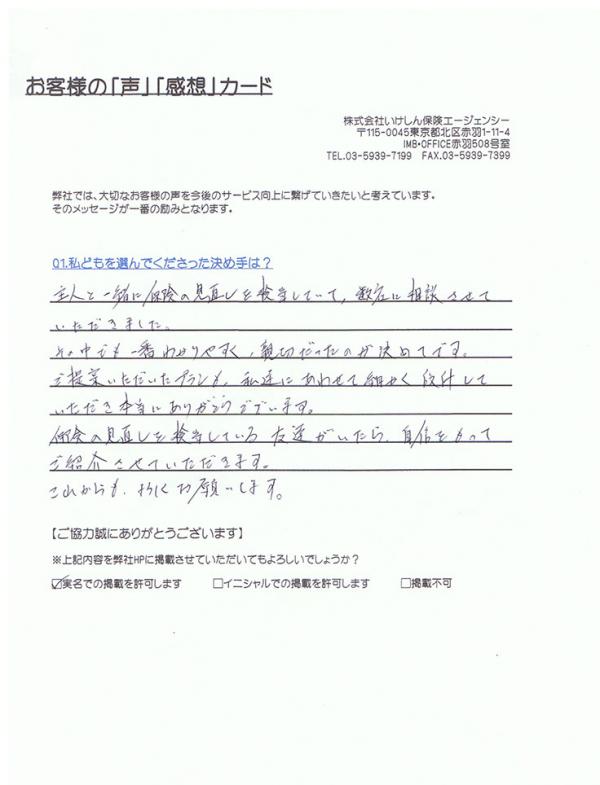 お客様の「声」「感想」カード
株式会社いけしん保険エージェンシー
〒115-0045東京都北区赤羽1-11-4
IMB・OFFICE赤羽508号室
TEL.03-5939-7199 FAX.03-5939-7399
弊社では、大切なお客様の声を今後のサービス向上に繋げていきたいと考えています。
そのメッセージが一番の励みとなります。
Q1.私どもを選んでくださった決め手は？
主人と一緒に保険の見直しを検討していて、数店に相談させて
いただきました。
その中でも一番わかりやすく、親切だったのが決めてです。
ご提案いただいたプランも、私達にあわせて細かく設計して
いただき本当にありがとうございます。
保険の見直しを検討している友達がいたら、自信をもって
ご紹介させていただきます。
これからも、お願いします。
【ご協力誠にありがとうございます】
※上記内容を弊社HPに掲載させていただいてもよろしいでしょうか？
☑実名での掲載を許可します □イニシャルでの掲載を許可します □掲載不可